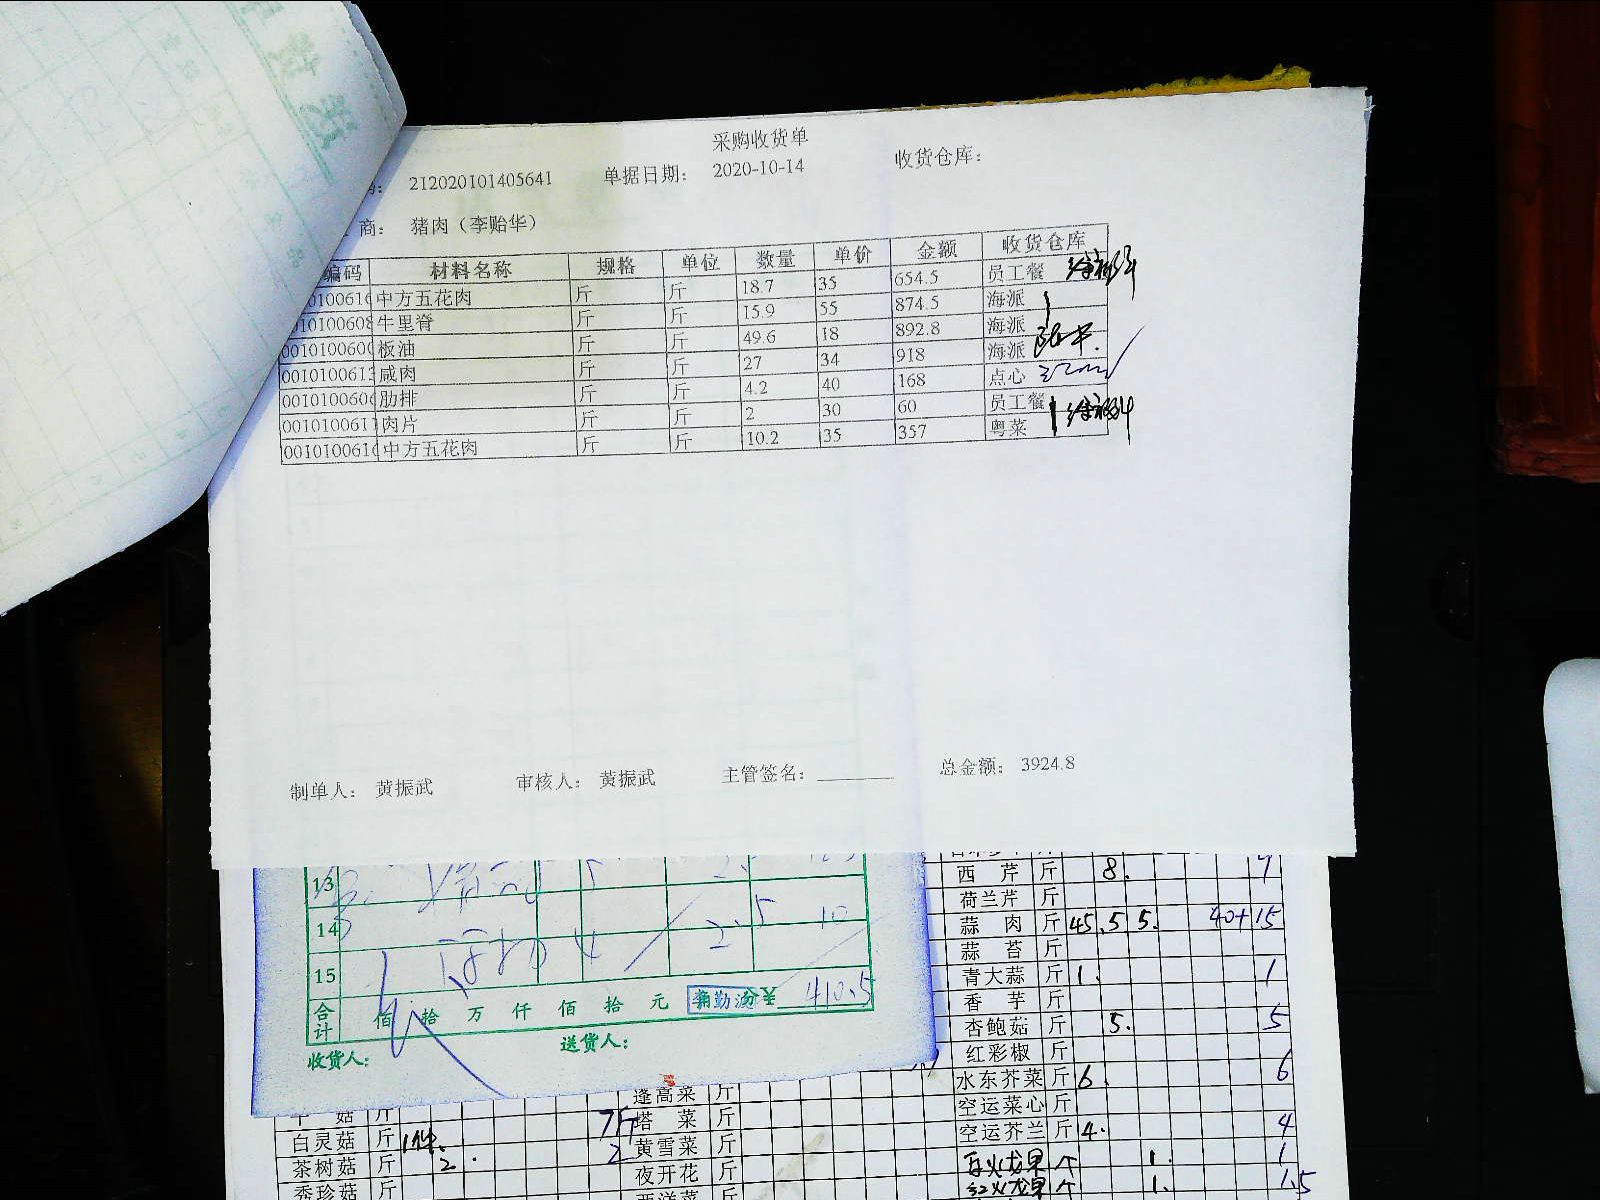 采购收货单
212020101405641 单据日期： 2020-10-14 收货仓库：
商： 猪肉（李贻华）
编码 材料名称 规格 单位 数量 单价 金额 收货仓库
中方五花肉 斤 斤 18.7 35 654.5 员工餐
牛里脊 斤 斤 15.9 55 874.5 海派
板油 斤 斤 49.6 18 892.8 海派
咸肉 斤 斤 27 34 918 海派
肋排 斤 斤 4.2 40 168 点心
肉片 斤 斤 2 30 60 员工餐
中方五花肉 斤 斤 10.2 35 357 粤菜
制单人： 黄振武 审核人： 黄振武 主管签名： 总金额： 3924.8
13
14 2.5 10
15 4
合计 佰 拾 万 仟 佰 拾 元 ¥ 410.5
收货人： 送货人：
西芹 斤 8.
荷兰芹 斤
蒜肉 斤 45.5 5. 40+15
蒜苔 斤
青大蒜 斤 1. 1
香芋 斤
杏鲍菇 斤 5. 5
红彩椒 斤
水东芥菜 斤 6. 6
空运菜心 斤
空运芥兰 斤 4. 4
白火龙果 个 1. 1
红火龙果 个 1. 1.5
菇 斤
白灵菇 斤 1件.
茶树菇 斤 2. 2
秀珍菇 斤
蓬高菜 斤
塔菜 斤
黄雪菜 斤
夜开花 斤
西洋菜 斤